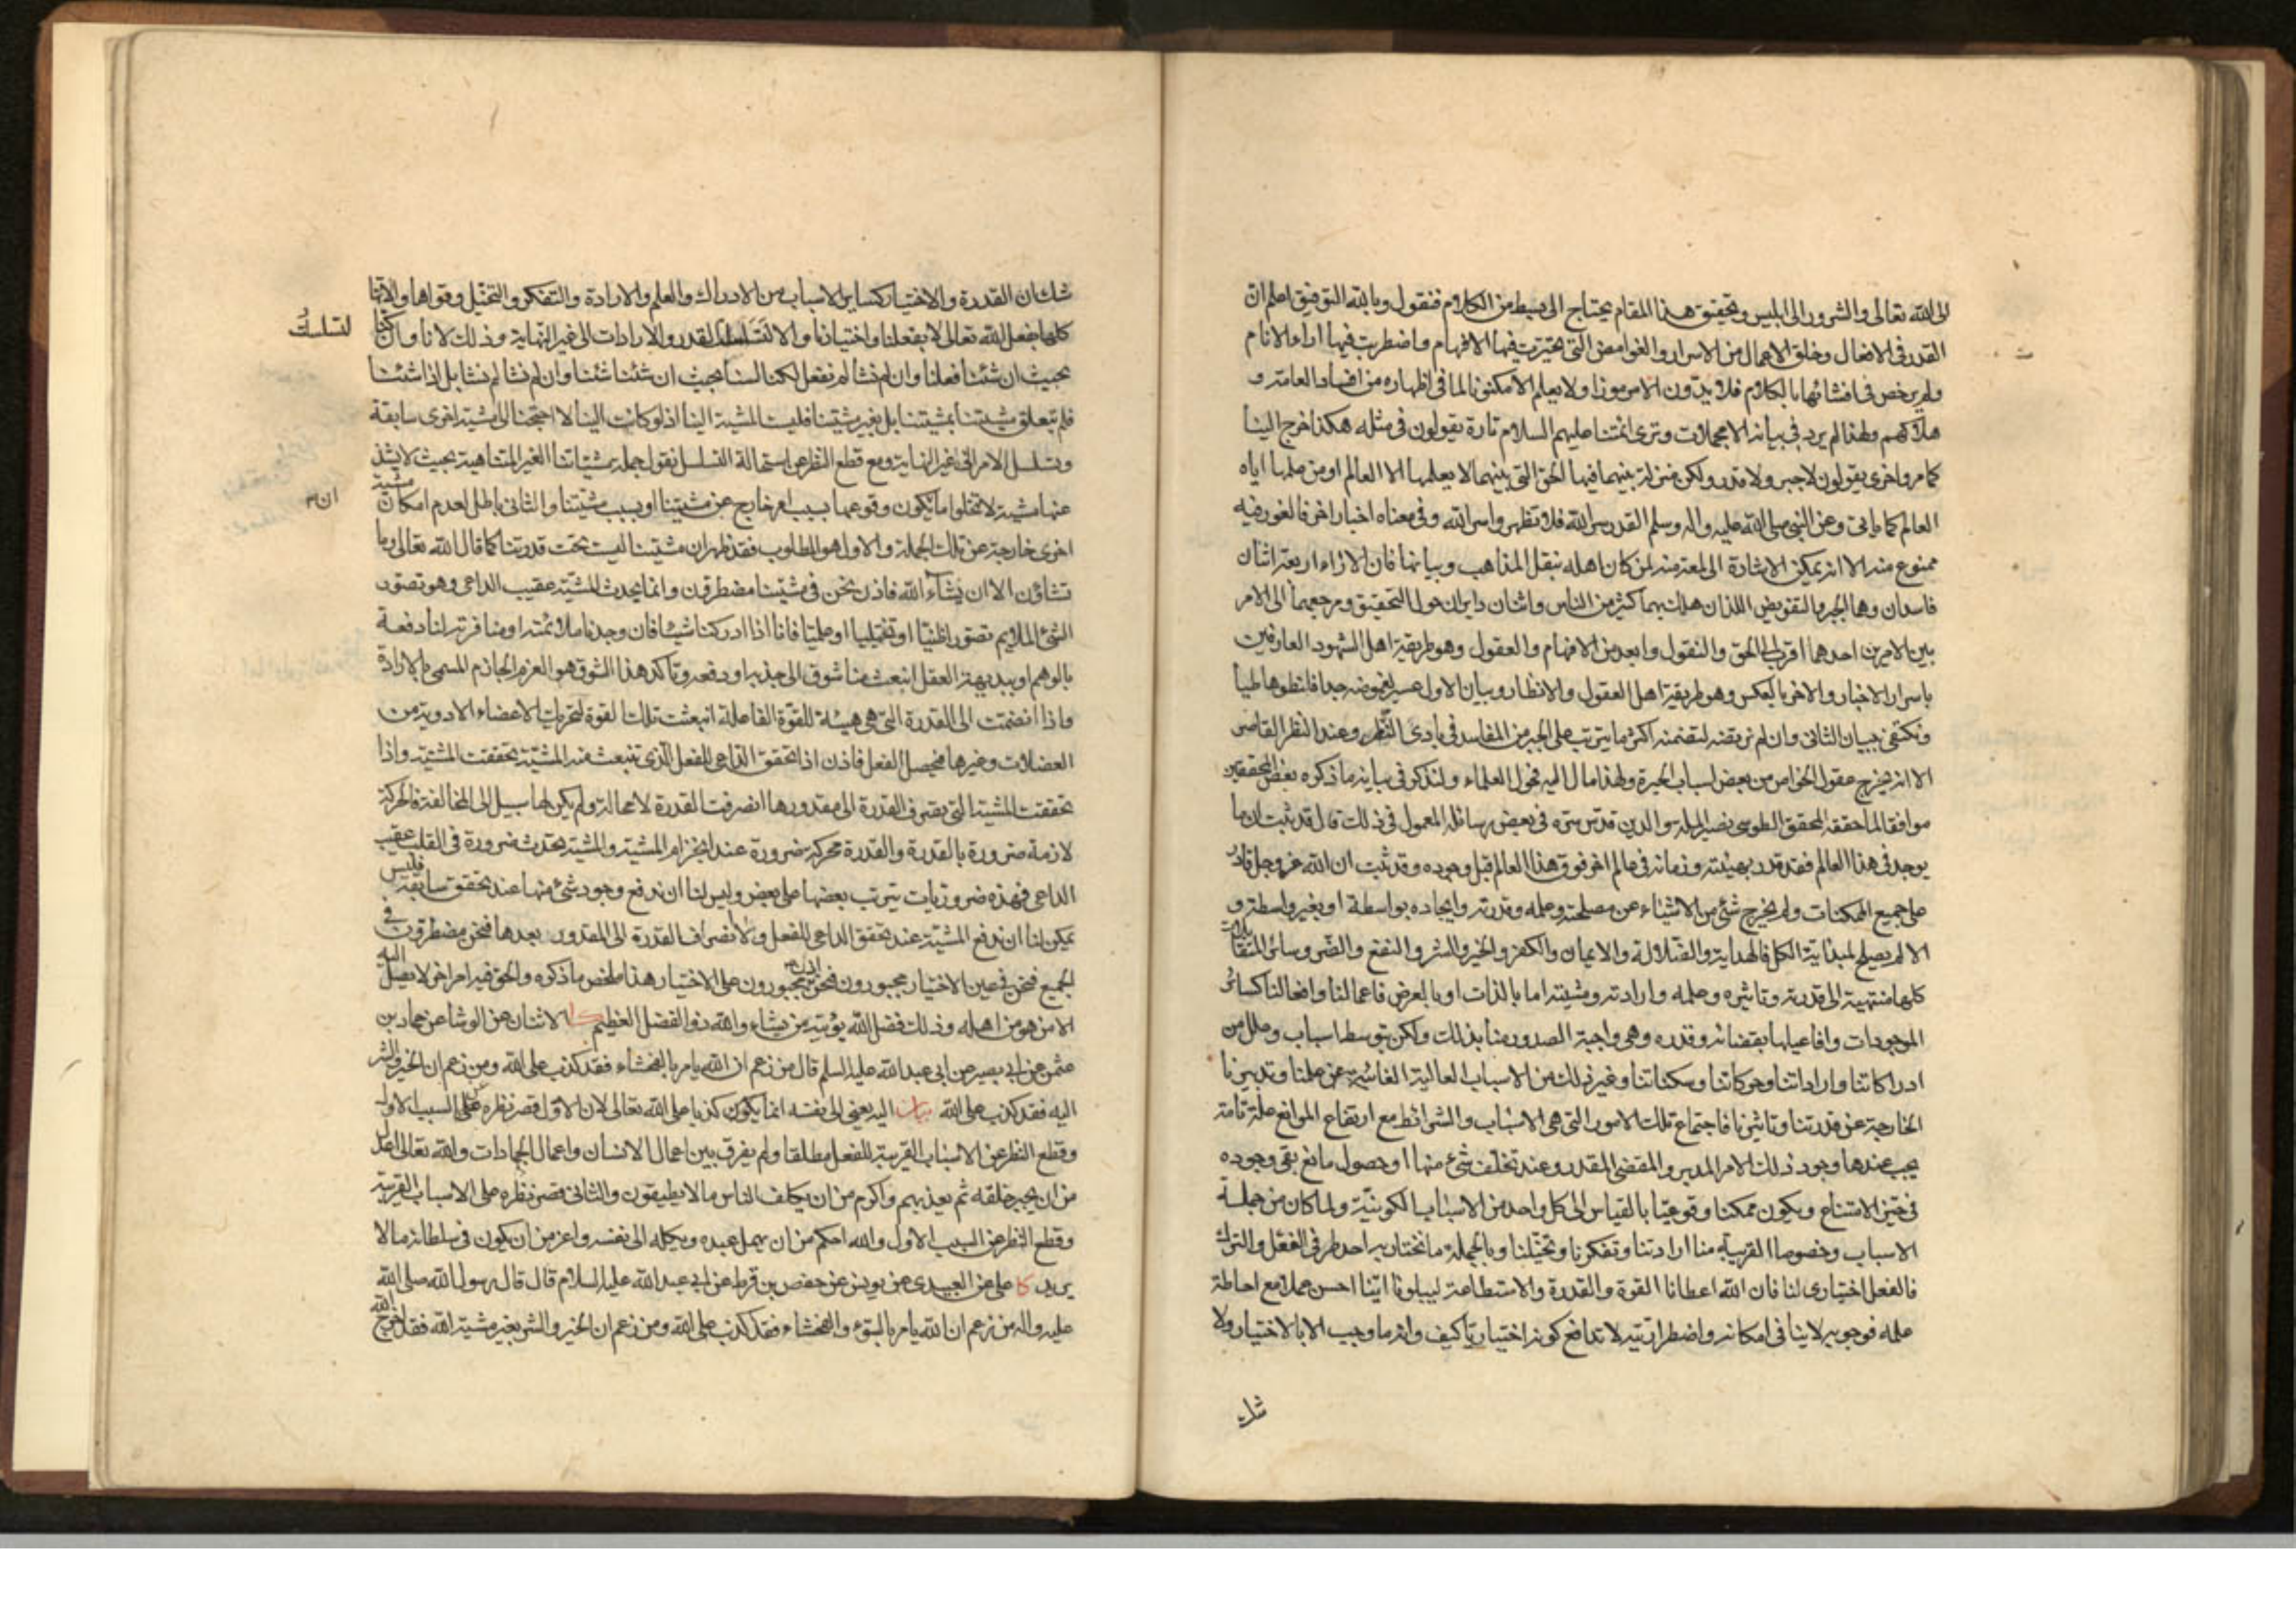 الى الله تعالى والشرور الى ابليس وتحقيق هذا المقام يحتاج الى بسط من الكلام فنقول وبالله التوفيق اعلم ان
القدر فى الافعال وخلق الاعمال من الاسرار والغوامض التى تحيرت فيها الافهام واضطربت فيها اراء الانام
ولم يرخص فى افشائها بالكلام فلا يدون الا مرموزا ولا يعلم الا مكنونا لما فى اظهاره من افساد العامة و
هلاكهم ولهذا لم يرد فى بيانه الا مجملات وترى ائمتنا عليهم السلام تارة يقولون فى مثله هكذا خرج الينا
كما مر واخرى يقولون لا جبر ولا قدر ولكن منزلة بينهما فيها الحق التى بينهما لا يعلمها الا العالم او من علمها اياه
العالم كما ياتى وعن النبى صلى الله عليه واله وسلم القدر سر الله فلا تظهروا سر الله وفى معناه اخبار اخر فالغور فيه
ممنوع منه الا انه يمكن الاشارة الى لمعة منه لمن كان اهله بنقل المذاهب وبيانها فان الاراء اربعة اثنان
فاسدان وهما الجبر والتفويض اللذان هلك بهما كثير من الناس واثنان دايران حول التحقيق ومرجعهما الى الامر
بين الامرين احدهما اقرب الى الحق والنقول وابعد من الافهام والعقول وهو طريقة اهل الشهود العارفين
باسرار الاخبار والاخر بالعكس وهو طريقة اهل العقول والانظار وبيان الاول عسير لغموضه جدا فلنطوها طيا
ونكتفى ببيان الثانى وان لم نرتضه لتضمنه اكثر ما يترتب على الجبر من المفاسد فى بادى النظر وعند النظر القاصر
الا انه يخرج عقول الخواص من بعض اسباب الحيرة ولهذا مال اليه فحول العلماء ولنذكر فى بيانه ما ذكره بعض المحققين
موافقا لما حققه المحقق الطوسى نصير الملة والدين قدس سره فى بعض رسائله المعمول فى ذلك قال قد ثبت ان ما
يوجد فى هذا العالم فقد قدر بهيئته وزمانه فى عالم اخر فوق هذا العالم قبل وجوده وقد ثبت ان الله عز وجل قادر
على جميع الممكنات ولم يخرج شئ من الاشياء عن مصلحته وعلمه وقدرته وايجاده بواسطة او بغير واسطة و
الا لم يصلح لمبدئية الكل فالهداية والضلالة والايمان والكفر والخير والشر والنفع والضر وسائر المتقابلات
كلها منتهية الى قدرته وتاثيره وعلمه وارادته ومشيته اما بالذات او بالعرض فاعمالنا وافعالنا كسائر
الموجودات وافاعيلها بقضائه وقدره وهى واجبة الصدور منا بذلك ولكن بتوسط اسباب وعلل من
ادراكاتنا واراداتنا وحركاتنا وسكناتنا وغير ذلك من الاسباب العالية الغائبة عن علمنا وتدبيرنا
الخارجة عن قدرتنا وتاثيرنا فاجتماع تلك الامور التى هى الاسباب والشرائط مع ارتفاع الموانع علة تامة
يجب عندها وجود ذلك الامر المدبر والمقضى المقدر وعند تخلف شئ منها او حصول مانع بقى وجوده
فى حيز الامتناع ويكون ممكنا وقوعيا بالقياس الى كل واحد من الاسباب الكونية ولما كان من جملة
الاسباب وخصوصا القريبة منا ارادتنا وتفكرنا وتخيلنا وبالجملة ما نختار به احد طرفى الفعل والترك
فالفعل اختيارى لنا فان الله اعطانا القوة والقدرة والاستطاعة ليبلونا اينا احسن عملا مع احاطة
علمه فوجوبه لا ينافى امكانه واضطراريته لا تدافع كونه اختياريا كيف وانه ما وجب الا بالاختيار ولا
شك
شك ان القدرة والاختيار كسائر الاسباب من الادراك والعلم والارادة والتفكر والتخيل وقواها والاتها
كلها بفعل الله تعالى لا بفعلنا واختيارنا والا لتسلسلت القدر والارادات الى غير النهاية وذلك لانا وان كنا
لتسلسل
بحيث ان شئنا فعلنا وان لم نشا لم نفعل لكنا لسنا بحيث ان شئنا شئنا وان لم نشا لم نشا بل اذا شئنا
فلم تتعلق مشيتنا بمشيتنا بل بغير مشيتنا فليست المشية الينا اذ لو كانت الينا لاحتجنا الى مشية اخرى سابقة
وتسلسل الامر الى غير النهاية ومع قطع النظر عن استحالة التسلسل نقول جملة مشياتنا الغير المتناهية بحيث لا يشذ
عنها مشية لا تخلوا اما ان يكون وقوعها بسبب امر خارج عن مشيتنا او بسبب مشيتنا والثانى باطل لعدم امكان مشية
اخرى خارجة عن تلك الجملة والاول هو المطلوب فقد ظهر ان مشيتنا ليست تحت قدرتنا كما قال الله تعالى وما
تشاؤن الا ان يشاء الله فاذن نحن فى مشيتنا مضطرون وانما يحدث المشية عقيب الداعى وهو تصور
الشئ الملايم تصورا ظنيا او تخيليا او علميا فانا اذا ادركنا شيئا فان وجدنا ملائمته او منافرته لنا دفعة
بالوهم او ببديهة العقل انبعث منا شوق الى جذبه او دفعه وتاكد هذا الشوق هو العزم الجازم المسمى بالارادة
واذا انضمت الى القدرة التى هى هيئة للقوة الفاعلة انبعثت تلك القوة لتحريك الاعضاء الادوية من
العضلات وغيرها فيحصل الفعل فاذن اذا تحقق الداعى للفعل الذى تنبعث منه المشية تحققت المشية واذا
تحققت المشية التى تصرف القدرة الى مقدورها انصرفت القدرة لا محالة ولم يكن لها سبيل الى المخالفة فالحركة
لازمة ضرورة بالقدرة والقدرة محركة ضرورة عند انجزام المشية والمشية تحدث ضرورة فى القلب عقيب
الداعى فهذه ضروريات يترتب بعضها على بعض وليس لنا ان ندفع وجود شئ منها عند تحقق سابقه فليس
يمكن لنا ان ندفع المشية عند تحقق الداعى للفعل ولا انصراف القدرة الى المقدور بعدها فنحن مضطرون فى
الجميع فنحن فى عين الاختيار مجبورون فنحن اذن مجبورون على الاختيار هذا ملخص ما ذكره والحق فيه امر اخر لا يصل اليه
الا من هو من اهله وذلك فضل الله يؤتيه من يشاء والله ذو الفضل العظيم كا الاثنان عن الوشا عن حماد بن
عثمن عن ابى بصير عن ابى عبد الله عليه السلم قال من زعم ان الله يامر بالفحشاء فقد كذب على الله ومن زعم ان الخير والشر
اليه فقد كذب على الله بيان اليه يعنى الى نفسه انما يكون كذبا على الله تعالى لان الاول قصر نظره على السبب الاول
وقطع النظر عن الاسباب القريبة للفعل مطلقا ولم يفرق بين اعمال الانسان واعمال الجمادات والله تعالى اعدل
من ان يجبر خلقه ثم يعذبهم واكرم من ان يكلف الناس ما لا يطيقون والثانى قصر نظره على الاسباب القريبة
وقطع النظر عن السبب الاول والله احكم من ان يهمل عبده ويكله الى نفسه واعز من ان يكون فى سلطانه ما لا
يريد كا على عن العبيدى عن يونس عن حفص بن قرط عن ابى عبد الله عليه السلام قال قال رسول الله صلى الله
عليه واله من زعم ان الله يامر بالسوء والفحشاء فقد كذب على الله ومن زعم ان الخير والشر بغير مشية الله فقد اخرج الله